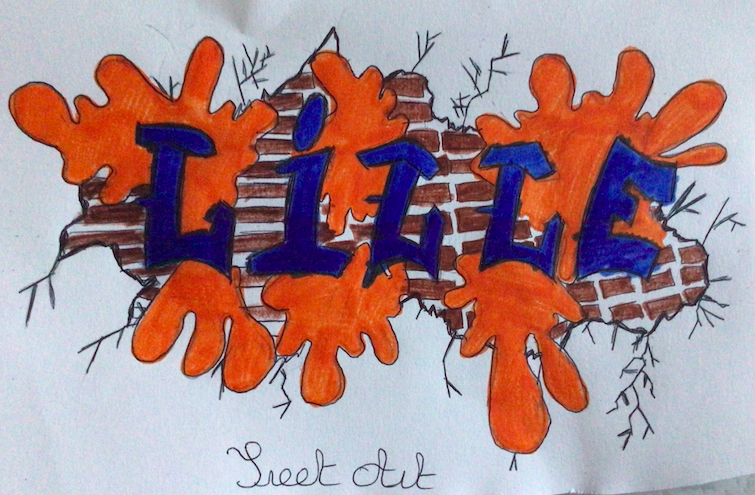 LiLLE
Street Art